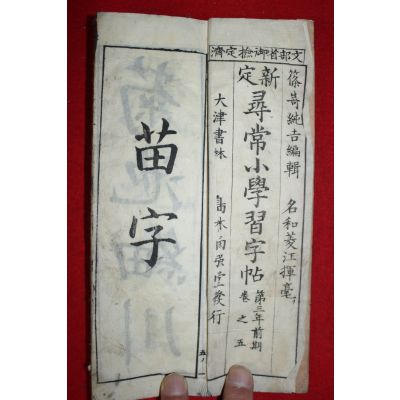 文部省御撿定濟
篠嵜純吉編輯
名和菱江揮毫
新定尋常小學習字帖
第三年前期
卷之五
大津書林
發行
苗字
五ノ一